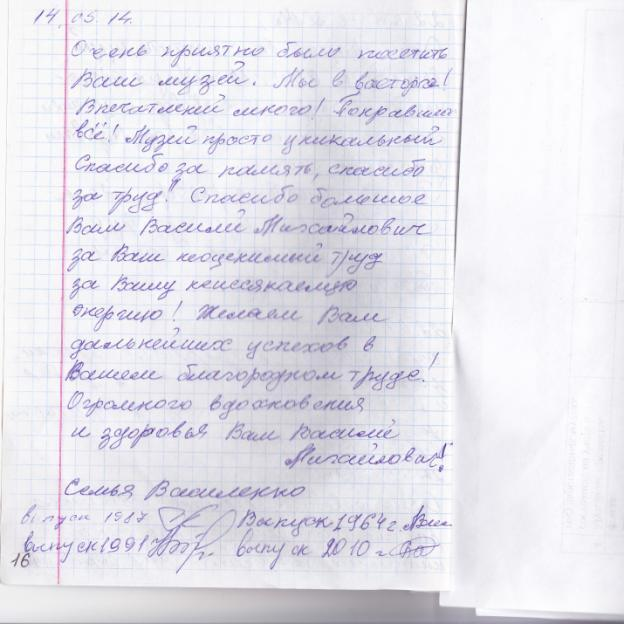 14.05.14.
Очень приятно было посетить
Ваш музей. Мы в восторге!
Впечатлений много! Понравилось
всё! Музей просто уникальный
Спасибо за память, спасибо
за труд! Спасибо большое
Вам Василий Михайлович
за Ваш неоценимый труд
за Вашу неиссякаемую
энергию! Желаем Вам
дальнейших успехов в
Вашем благородном труде!
Огромного вдохновения
и здоровья Вам Василий
Михайлович!
Семья Василенко
выпуск 1987 Выпуск 1964 г
выпуск 1991 выпуск 2010 г
16